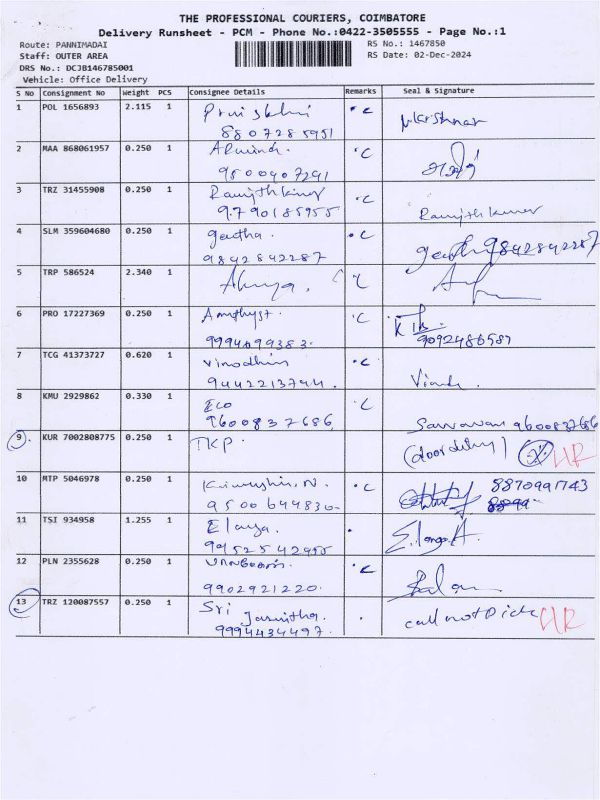 THE PROFESSIONAL COURIERS, COIMBATORE
Delivery Runsheet - PCM - Phone No.:0422-3505555 - Page No.:1
Route: PANNIMADAI
RS No.: 1467850
Staff: OUTER AREA
RS Date: 02-Dec-2024
DRS No.: DCJB146785001
Vehicle: Office Delivery
S No Consignment No Weight PCS Consignee Details Remarks Seal & Signature
1 POL 1656893 2.115 1
8807285951
2 MAA 868061957 0.250 1
9500407291
3 TRZ 31455908 0.250 1 Ranjithkumar
9790185955 Ranjithkumar
4 SLM 359604680 0.250 1 geetha.
9842842287 geetha 9842842287
5 TRP 586524 2.340 1
6 PRO 17227369 0.250 1 Amethyst.
9994099383. 9092486587
7 TCG 41373727 0.620 1 Vinodhini
9442213744.
8 KMU 2929862 0.330 1 Eco
9600837686 Saravanan 9600837686
9. KUR 7002808775 0.250 1 TKP. (door delivery)
10 MTP 5046978 0.250 1 8870991743
9500644830
11 TSI 934958 1.255 1
9952542955
12 PLN 2355628 0.250 1
9902921220.
13 TRZ 120087557 0.250 1 Sri
call not Pick
9994434497.